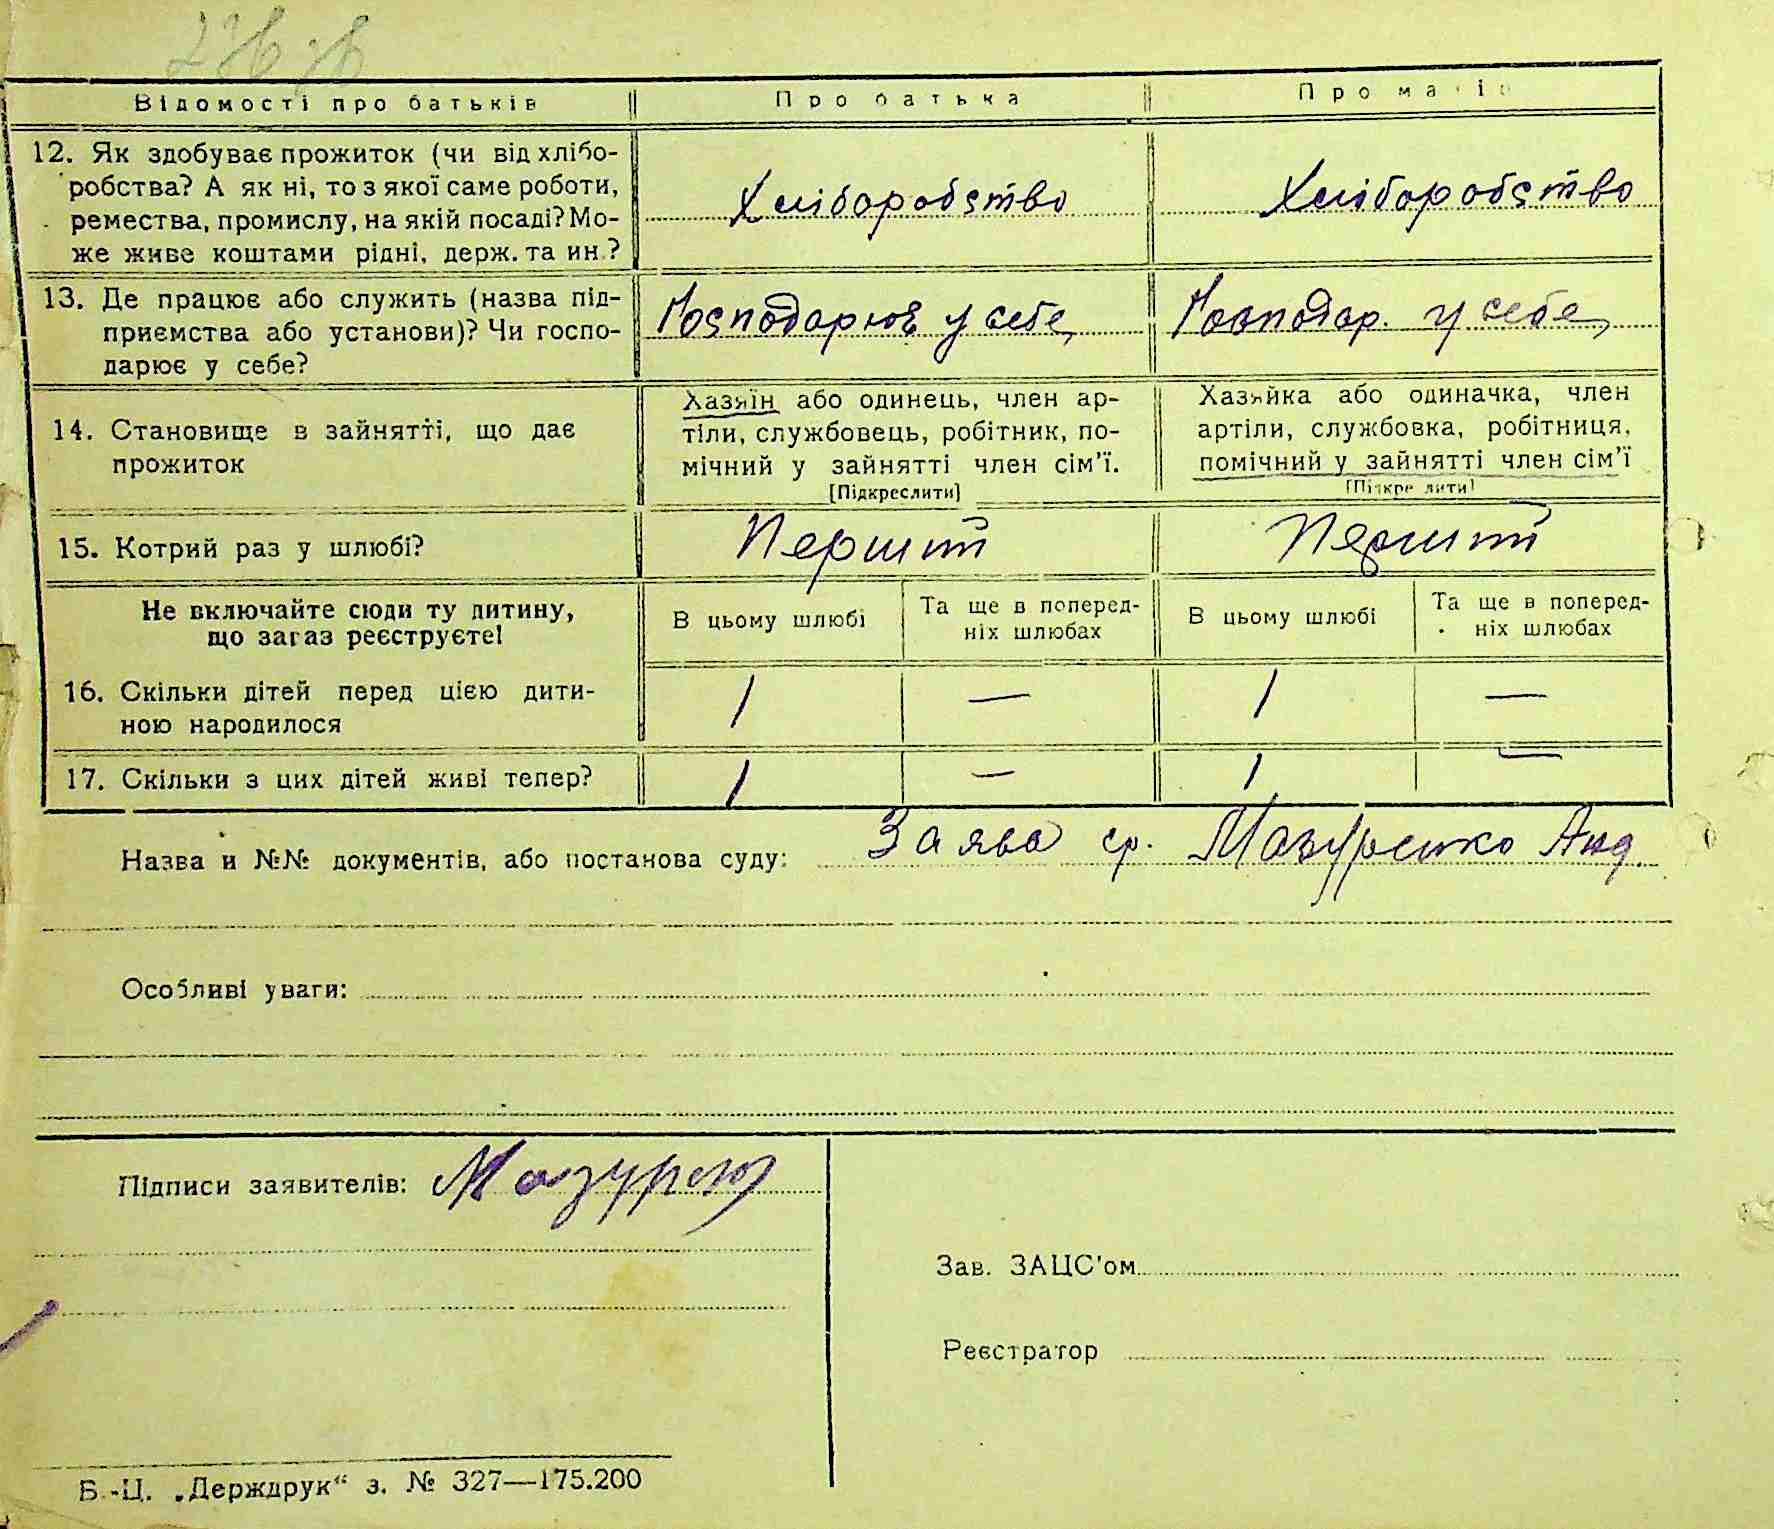 Відомості про батьків Про батька Про матір
12. Як здобуває прожиток (чи від хлібо-
робства? А як ні, то з якої саме роботи,
ремества, промислу, на якій посаді? Мо-
же живе коштами рідні, держ. та ин.?
Хліборобство Хліборобство
13. Де працює або служить (назва під-
приємства або установи)? Чи госпо-
дарює у себе?
Господарює у себе Господар. у себе
14. Становище в зайнятті, що дає
прожиток
Хазяїн або одинець, член ар-
тіли, службовець, робітник, по-
мічний у зайнятті член сім'ї.
[Підкреслити]
Хазяйка або одиначка, член
артіли, службовка, робітниця,
помічний у зайнятті член сім'ї
[Підкреслити]
15. Котрий раз у шлюбі? Перший Перший
Не включайте сюди ту дитину,
що загаз реєструєте!
В цьому шлюбі Та ще в поперед-
ніх шлюбах В цьому шлюбі Та ще в поперед-
ніх шлюбах
16. Скільки дітей перед цією дити-
ною народилося
1 — 1 —
17. Скільки з цих дітей живі тепер? 1 — 1 —
Назва и №№ документів, або постанова суду: Заява гр. Мазуренко Анд.
Особливі уваги:
Підписи заявителів: Мазурен
Зав. ЗАЦС'ом
Реєстратор
Б.-Ц. „Держдрук“ з. № 327—175.200